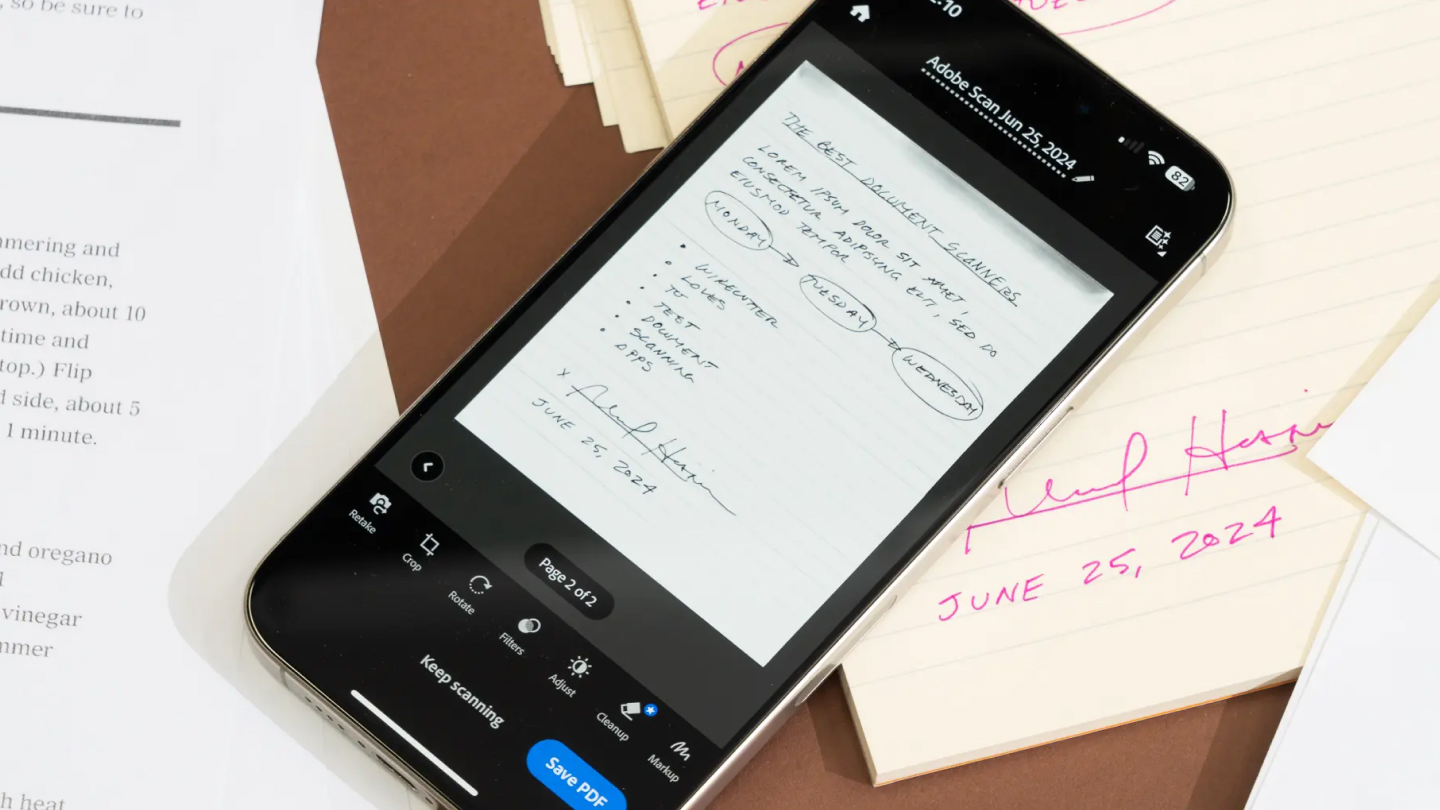 , so be sure to
mmering and
dd chicken,
rown, about 10
time and
top.) Flip
d side, about 5
1 minute.
nd oregano
vinegar
mmer
h heat
:10
82
Adobe Scan Jun 25, 2024
THE BEST DOCUMENT SCANNERS
LOREM IPSUM DOLOR SIT AMET,
CONSECTETUR ADIPISCING ELIT, SED DO
EIUSMOD TEMPOR
MONDAY → TUESDAY → WEDNESDAY
• WIRECUTTER
• LOVES
• TO
• TEST
• DOCUMENT
• SCANNING
APPS
X
JUNE 25, 2024
Page 2 of 2
Retake
Crop
Rotate
Filters
Adjust
Cleanup
Markup
Keep scanning
Save PDF
JUNE 25, 2024